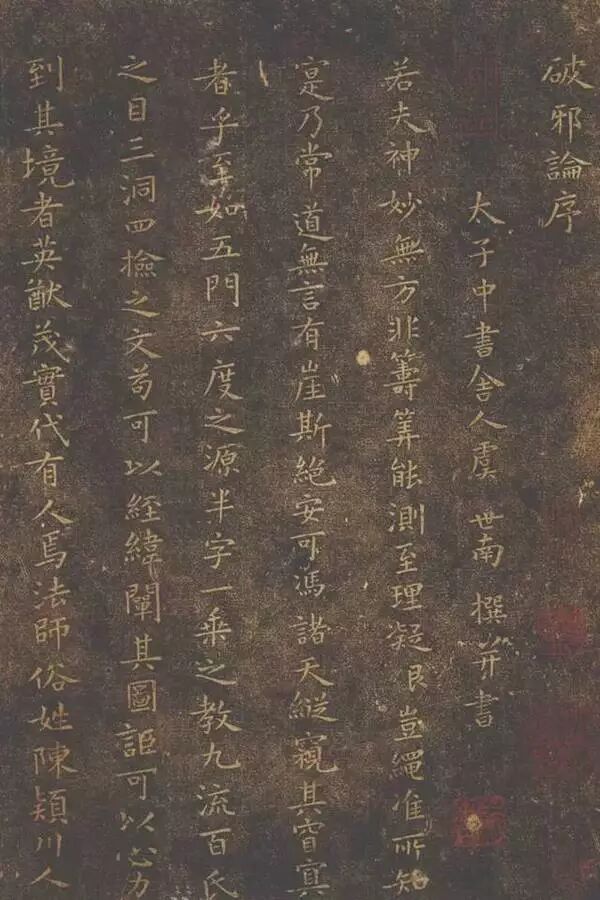 破邪論序
太子中書舍人虞世南撰并書
若夫神妙無方非籌筭能測至理凝邈豈繩准所知
寔乃常道無言有崖斯絕安可馮諸天縱窺其窅寞
者乎至如五門六度之源半字一乘之教九流百氏
之目三洞四撿之文苟可以經緯闡其圖詎可以心力
到其境者英猷茂實代有人焉法師俗姓陳潁川人